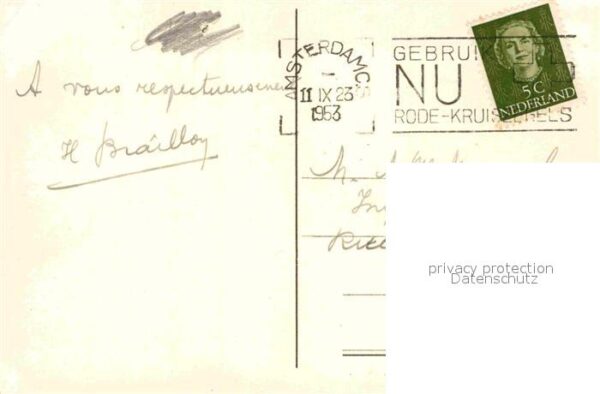 A vous respectueusement
H Brâilloy
AMSTERDAM CS
11 IX 23
1953
GEBRUIK
NU
RODE-KRUISZEGELS
5C
NEDERLAND
M.
privacy protection
Datenschutz